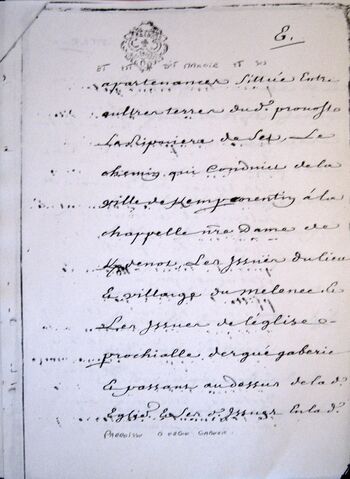 E.
ET DIT MANOIR ET SES
apartenances sittué Entre
autres terres du d. prevost
La Riviere de Jet, Le
chemin qui conduict de la
ville de Kempcorentin à la
chappelle nre Dame de
Kdevot, Les Issües du lieu
& village du melenec &
Les Issües de léglise
parochialle dergué gaberic
& passans au dessus de la d.
Eglise & Les d. Issues En la d.
PARROISSE D'ERGUE GABERIC